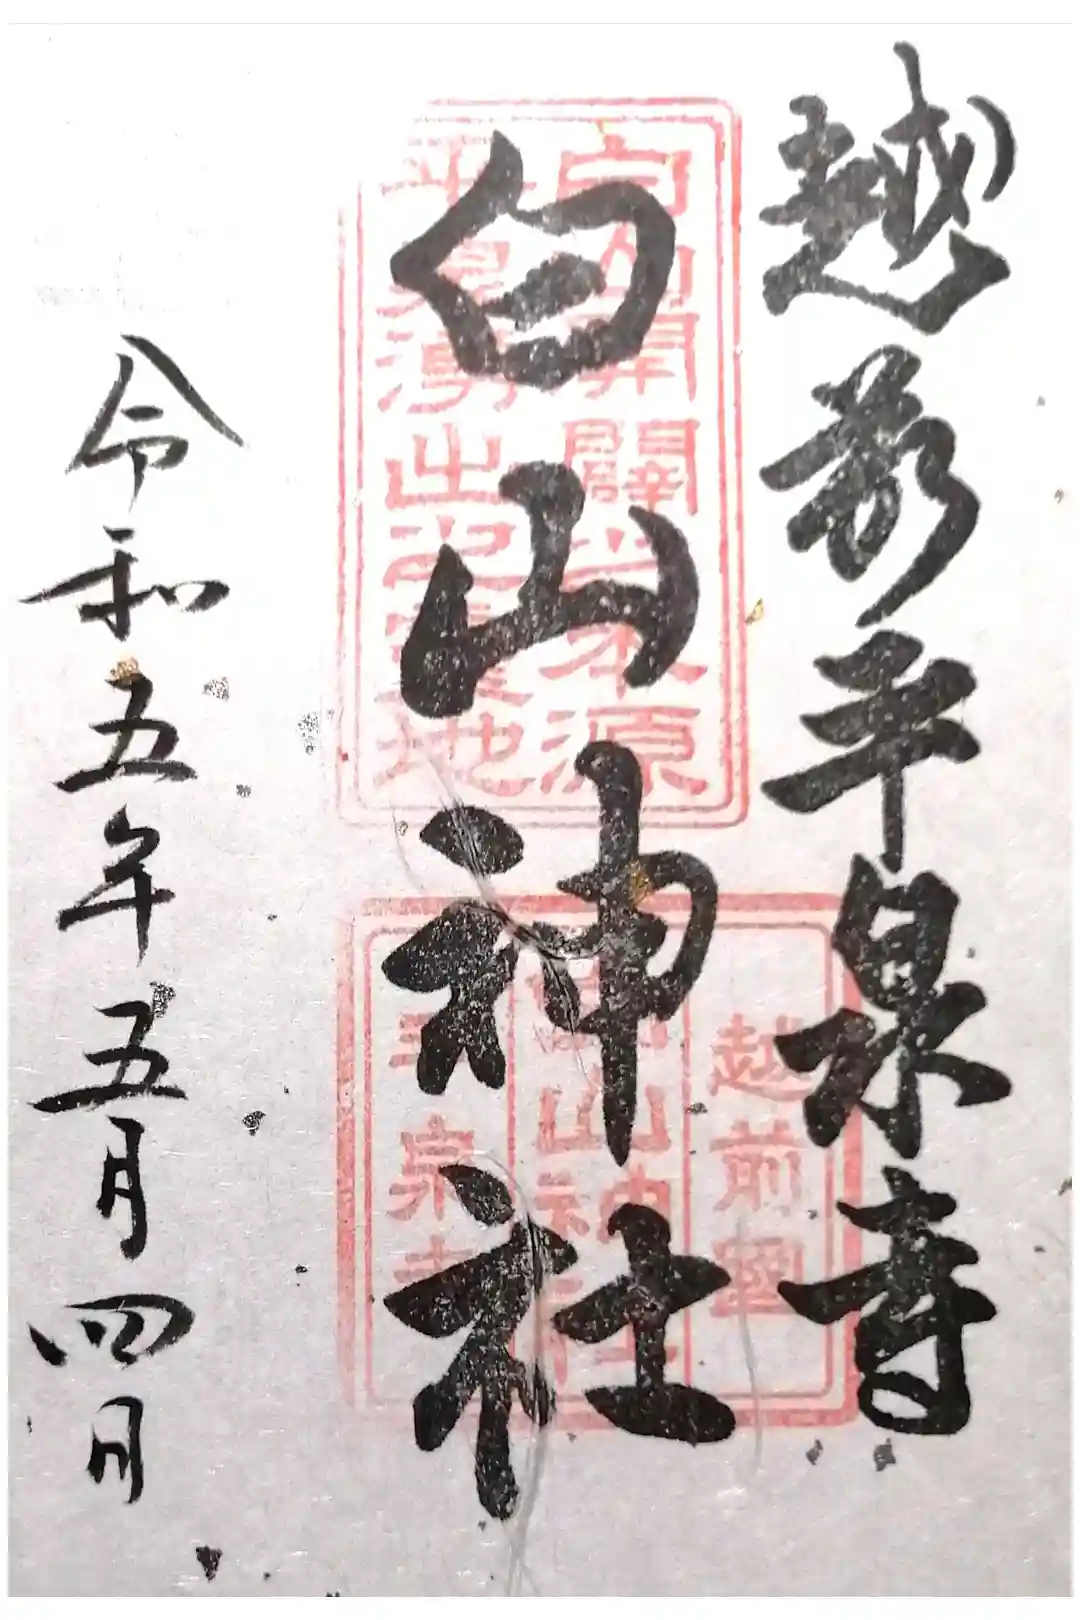 越前平泉寺
白山神社
令和五年五月四日
白山開闢之本源
平泉湧出之霊地
越前國
白山神社
平泉寺